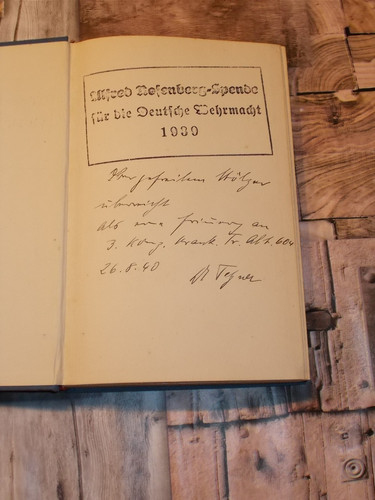 Alfred Rosenberg-Spende
für die Deutsche Wehrmacht
1939
Obergefreitem Hölzer
überreicht
als eine Erinnerung an
3. Krank. Tr. Abt. 604
26.8.40